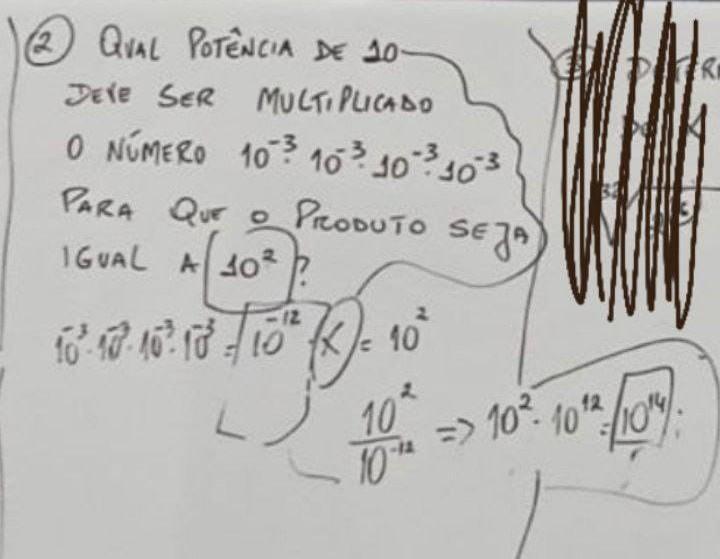 2 QUAL POTÊNCIA DE 10
DEVE SER MULTIPLICADO
O NÚMERO 10⁻³· 10⁻³· 10⁻³· 10⁻³
PARA QUE O PRODUTO SEJA
IGUAL A 10² ?
10⁻³· 10⁻³· 10⁻³· 10⁻³ = 10⁻¹² · X = 10²
10² / 10⁻¹² => 10² · 10¹² = 10¹⁴